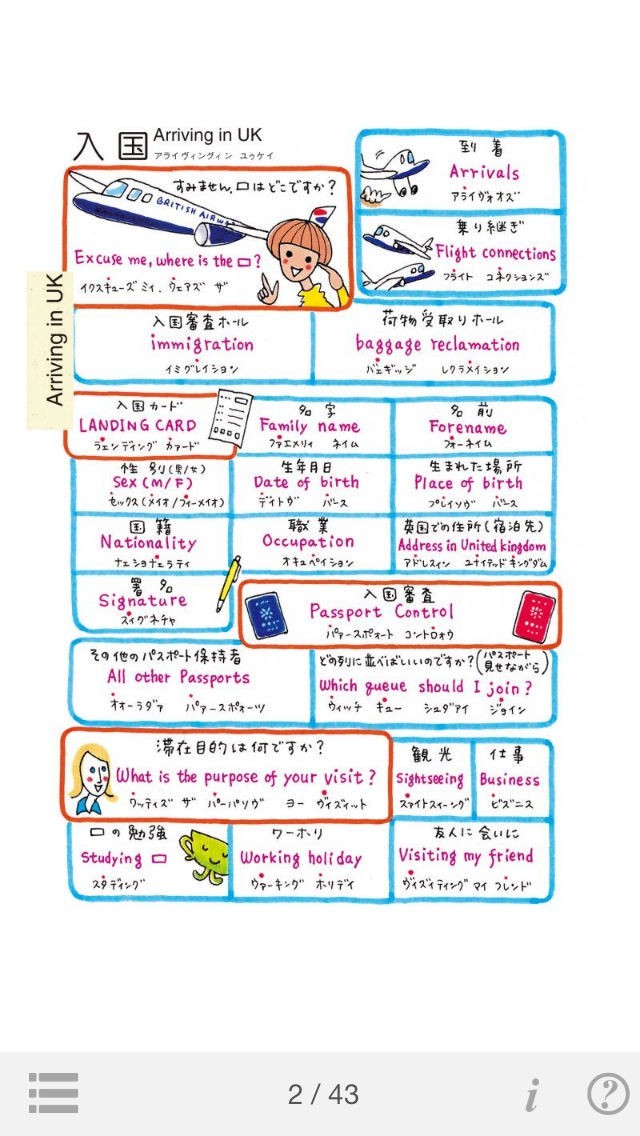 入国 Arriving in UK
アライヴィングィン ユゥケイ
すみません,□はどこですか?
BRITISH AIRW
Excuse me, where is the □?
イクスキューズ ミィ、ウェアズ ザ
到着
Arrivals
アライヴォオズ
乗り継ぎ
Flight connections
フライト コネクションズ
Arriving in UK
入国審査ホール
immigration
イミグレイション
荷物受取りホール
baggage reclamation
バェギッジ レクラメイション
入国カード
LANDING CARD
ラェンディング カァード
名字
Family name
ファエメリィ ネイム
名前
Forename
フォーネイム
性別(男/女)
Sex (M/F)
セックス(メイオ/フィーメイオ)
生年月日
Date of birth
デイトヴ バース
生まれた場所
Place of birth
プレイソヴ バース
国籍
Nationality
ナェショナェラティ
職業
Occupation
オキュペイション
英国での住所(宿泊先)
Address in United kingdom
アドレスィン ユナイテッドキングダム
署名
Signature
スィグネチャ
入国審査
Passport Control
パァースポォート コントロォウ
その他のパスポート保持者
All other Passports
オォーラダァ パァースポォーツ
どの列に並べばいいのですか?(パスポート見せながら)
Which queue should I join?
ウィッチ キュー シュダアイ ジョイン
滞在目的は何ですか?
What is the purpose of your visit?
ワッティズ ザ パーパソヴ ヨー ヴィズィット
観光
Sightseeing
スァイトスィーイング
仕事
Business
ビズニス
□の勉強
Studying □
スタディング
ワーホリ
Working holiday
ウァーキング ホリデイ
友人に会いに
Visiting my friend
ヴィズィティング マイ フレンド
2 / 43
i
?